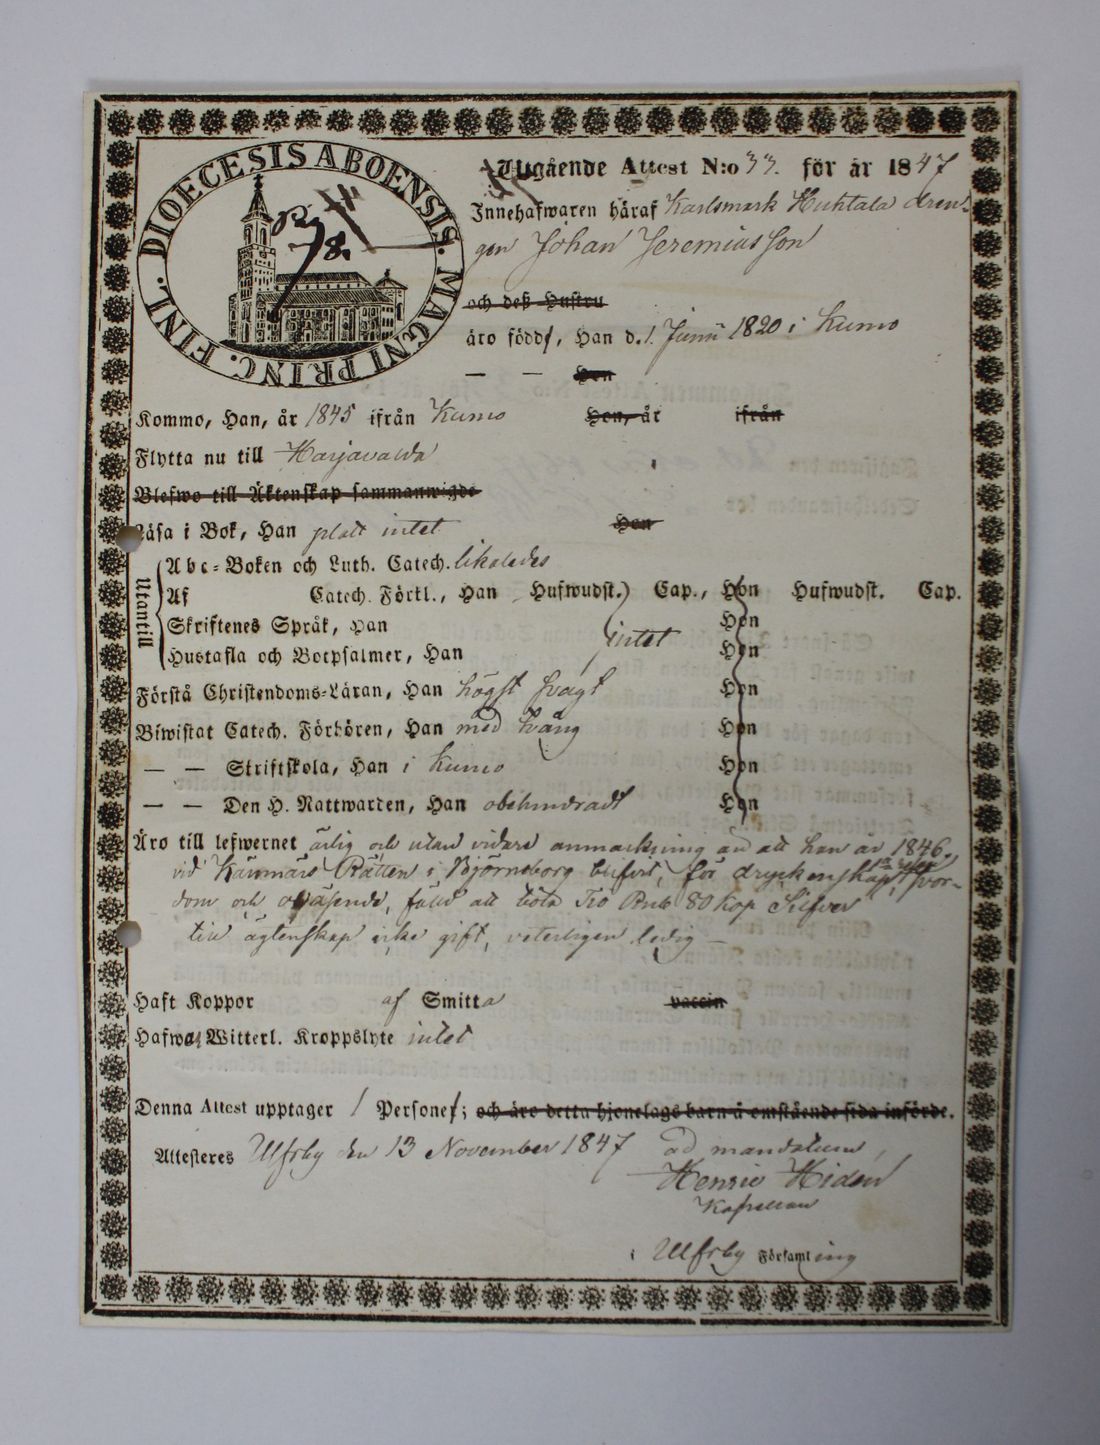 DIOECESIS ABOENSIS. MAGNI PRINC. FINL.
Utgående Attest N:o 33. för år 1847
Innehafwaren häraf Karlsmark Huhtala dren-
gen Johan Jeremiasson
och deß Hustru
äro född, Han d. 1. Junii 1820 i Kumo
— — Hon
Kommo, Han, år 1845 ifrån Kumo Hon, år ifrån
Flytta nu till Harjavalda
Blefwo till Äktenskap sammanwigde
Läsa i Bok, Han platt intet Hon
Utantill
Abc-Boken och Luth. Catech. likaledes
Af Catech. Förkl., Han Hufwudst. Cap., Hon Hufwudst. Cap.
Skriftenes Språk, Han Hon
Hustafla och Botpsalmer, Han intet Hon
Förstå Christendoms-Läran, Han högst svagt Hon
Biwistat Catech. Förhören, Han med tvång Hon
— — Skriftskola, Han i Kumo Hon
— — Den H. Nattwarden, Han obehindradt Hon
Äro till lefwernet ärlig och utan vidare anmärkning än att han år 1846
vid Kämnärs Rätten i Björneborg blifvit, för dryckenskap, svor-
dom och oväsende, fälld att böta Tio Rub 80 Kop Silfver
till ägtenskap icke gift, veterligen ledig —
Haft Koppor af Smitta vaccin
Hafwa Witterl. Kroppslyte intet
Denna Attest upptager 1 Persone; och äro detta hjonelags barn å omstående sida införde.
Attesteres Ulfsby den 13 November 1847 ad mandatum,
Henric Hiden
Kapellan
i Ulfsby Församling